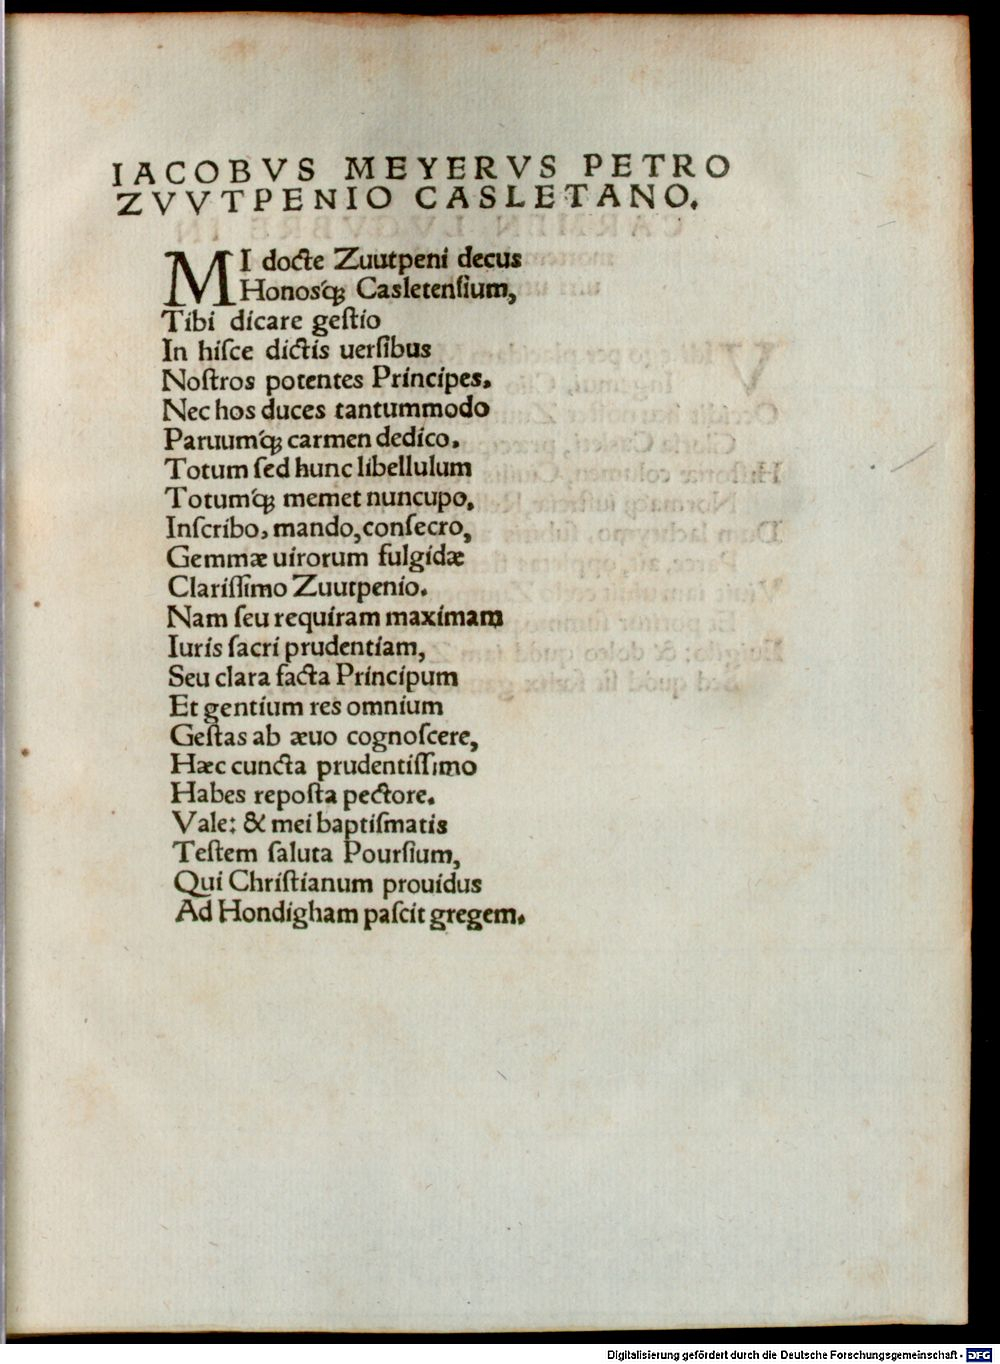 IACOBVS MEYERVS PETRO
ZVVTPENIO CASLETANO.
MI docte Zuutpeni decus
Honosq́; Casletenſium,
Tibi dicare geſtio
In hiſce dictis uerſibus
Noſtros potentes Principes.
Nec hos duces tantummodo
Paruumq́; carmen dedico.
Totum ſed hunc libellulum
Totumq́; memet nuncupo,
Inſcribo, mando, conſecro,
Gemmæ uirorum fulgidæ
Clariſſimo Zuutpenio.
Nam ſeu requiram maximam
Iuris ſacri prudentiam,
Seu clara facta Principum
Et gentium res omnium
Geſtas ab æuo cognoſcere,
Hæc cuncta prudentiſſimo
Habes repoſta pectore.
Vale: & mei baptiſmatis
Teſtem ſaluta Pourſium,
Qui Chriſtianum prouidus
Ad Hondigham paſcit gregem.
Digitalisierung gefördert durch die Deutsche Forschungsgemeinschaft - DFG